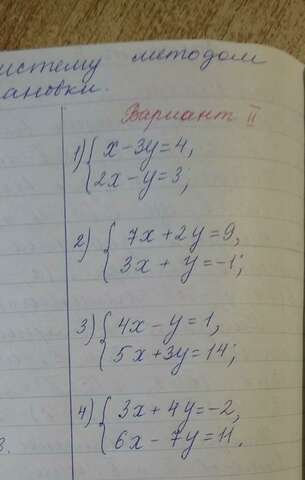 истему методом
ановки.
Вариант II
1) { x-3y=4,
2x-y=3;
2) { 7x+2y=9,
3x+ y=-1;
3) { 4x-y=1,
5x+3y=14;
4) { 3x+4y=-2,
6x-7y=11.
в.